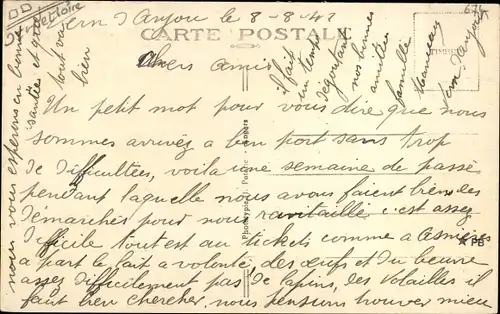 Vern d'Anjou le 8-8-42
CARTE POSTALE
Chers amis
Un petit mot pour vous dire que nous
sommes arrivez a bon port sans trop
de difficultées, voila une semaine de passé
pendant laquelle nous avons faient bien les
demarches pour nous ravitaille c'est assez
dificile tout est au tickets comme a Asnières
a part le lait a volonté, des œufs et du beurre
assez difficilement pas de lapins, des volailles il
faut bien chercher, nous pensions trouver mieu
nous vous esperons en bonne
santée et que
tout va
bien
il fait
un temps
degoutant
nos bonnes
amitiés
famille
Vern d'Anjou
Phototypie
Angers